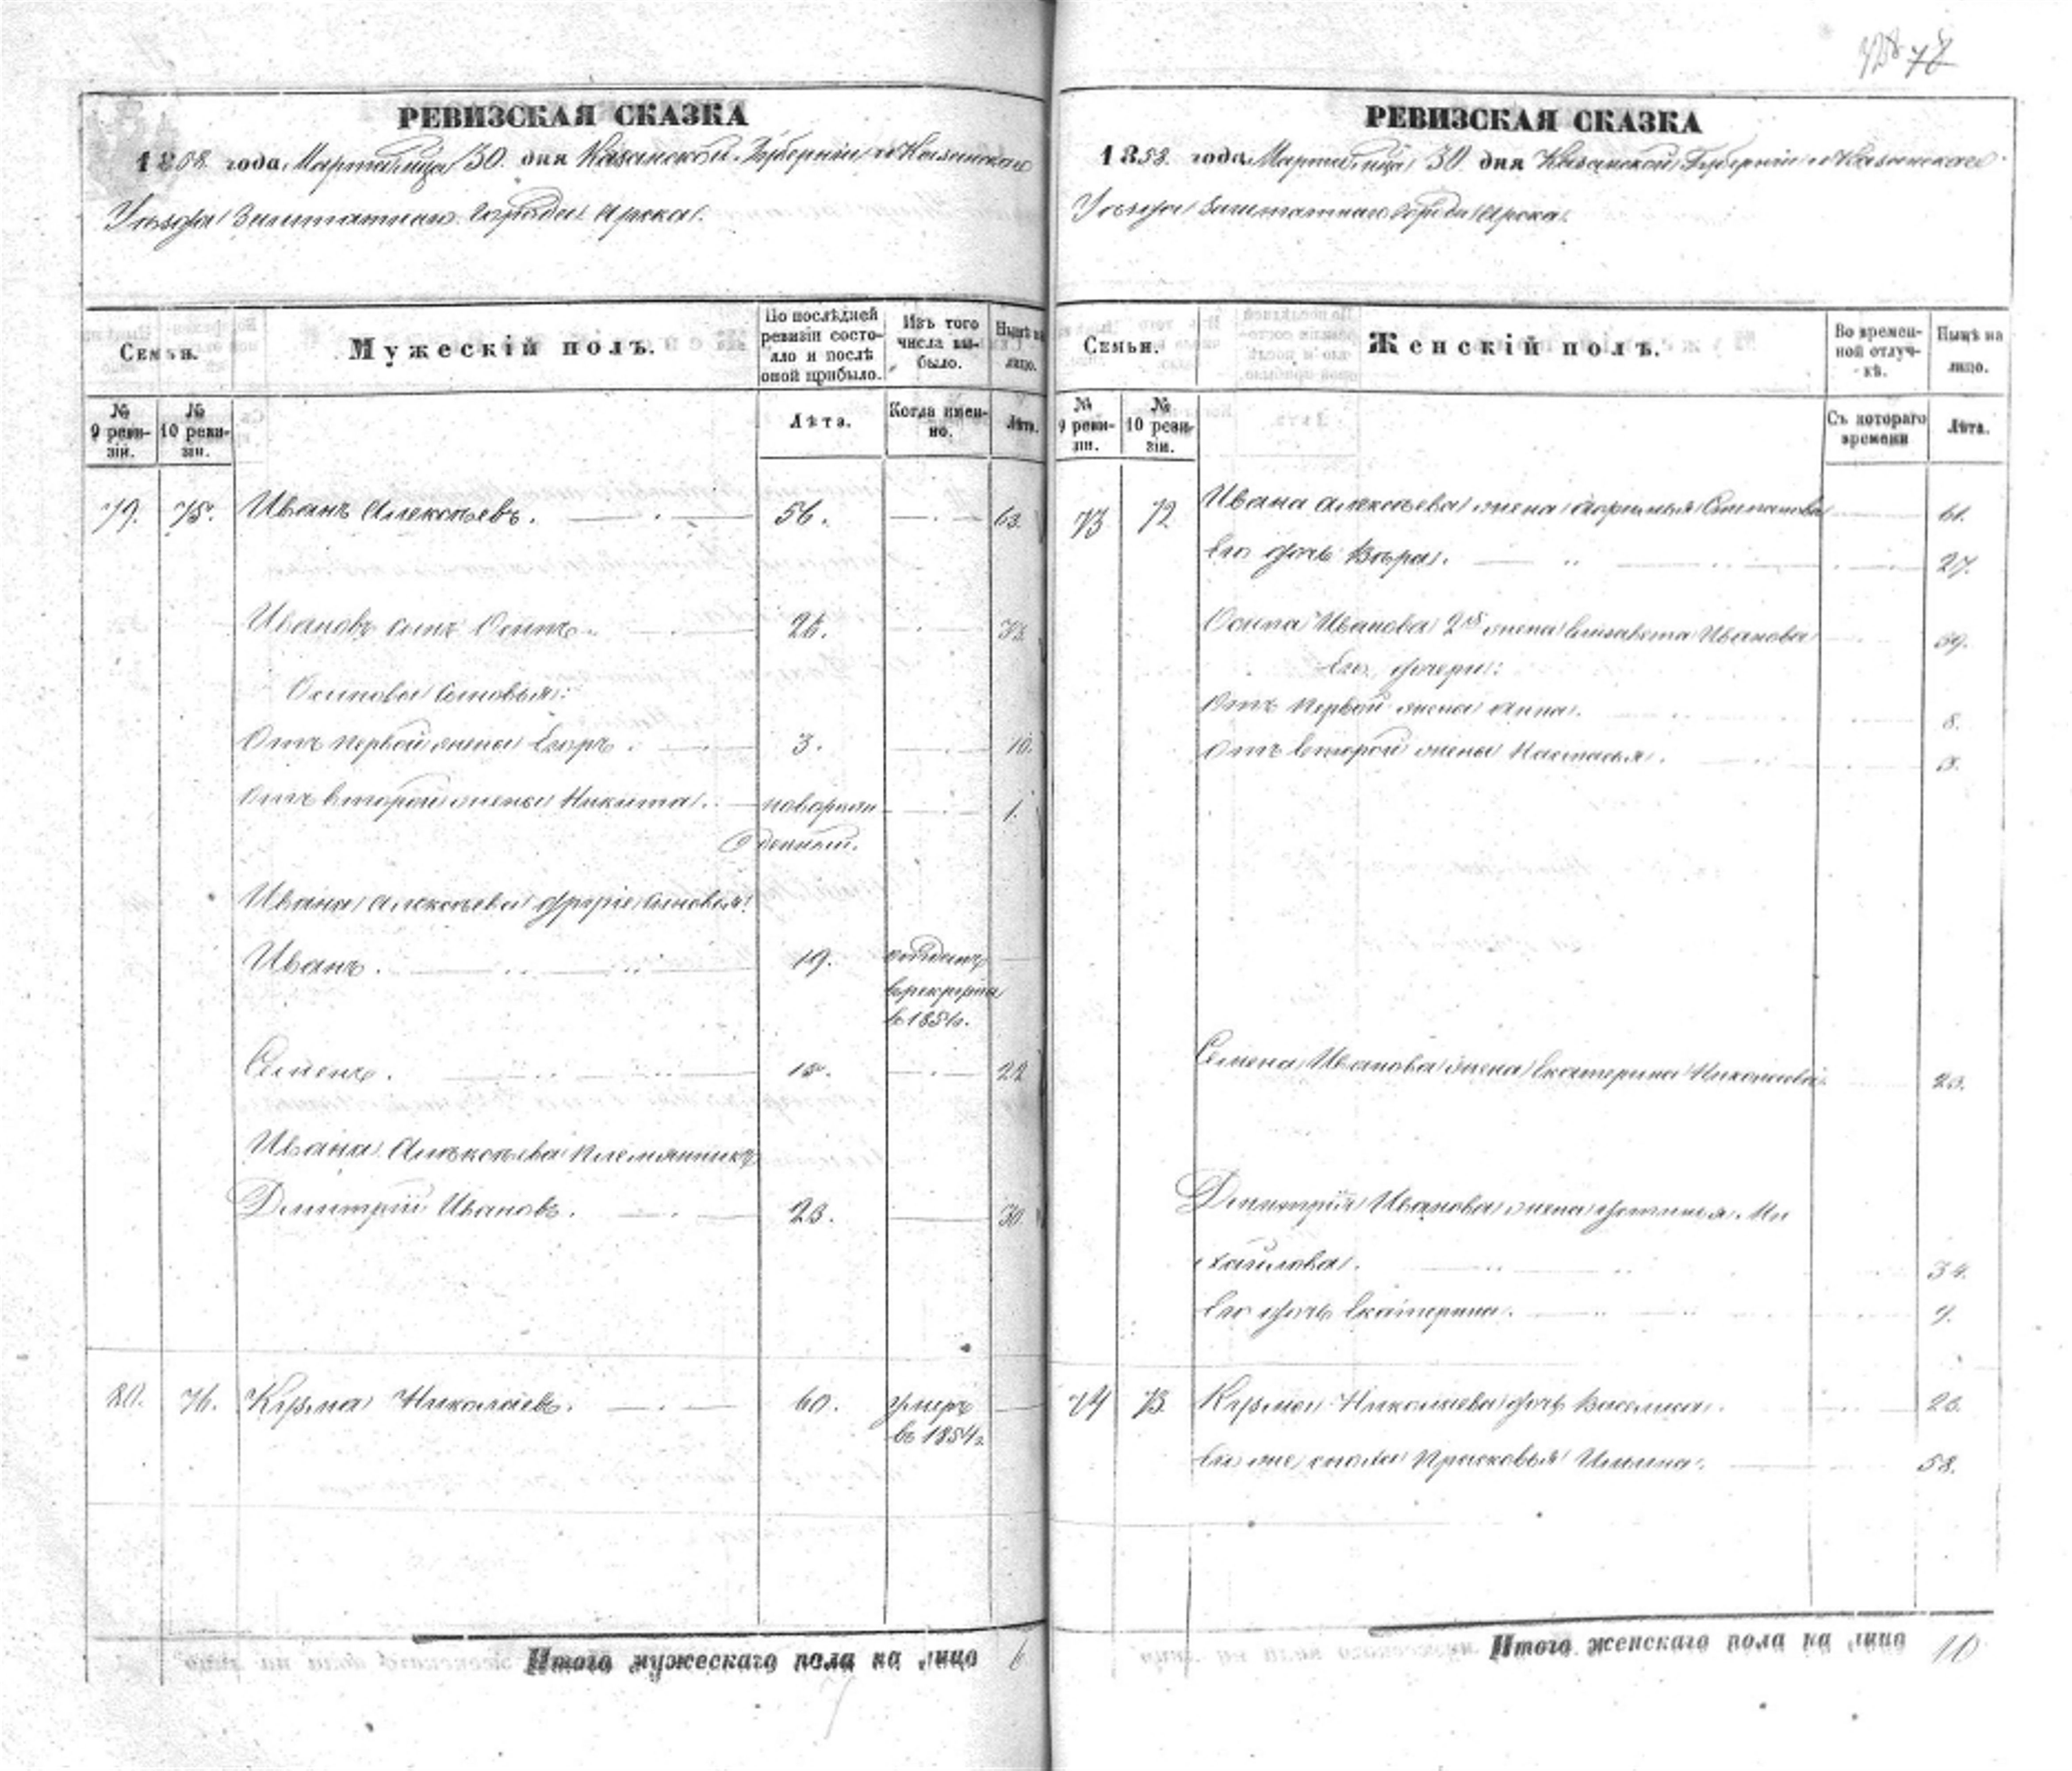 78
РЕВИЗСКАЯ СКАЗКА
1858 года Марта м-ца 30 дня Казанской Губерніи и Казанскаго
Уѣзда Заштатнаго города Арска.
Семьи.
Мужескій полъ.
По послѣдней ревизіи состо-
яло и послѣ оной прибыло.
Изъ того числа вы-
было.
Нынѣ на лицо.
№ 9 реви-
зіи.
№ 10 реви-
зіи.
Лѣта.
Когда имен-
но.
Лѣта.
79. 75. Иванъ Алексѣевъ. 56. 63.
Ивановъ сынъ Осипъ. 26. 33.
Осиповы сыновья:
Отъ первой жены Егоръ. 3. 10.
Отъ второй жены Никита. новорож 1.
денный.
Ивана Алексѣева другіе сыновья:
Иванъ. 19. отданъ
в рекруты
в 1854.
Семенъ. 15. 22
Ивана Алексѣева племянникъ
Дмитрій Ивановъ. 23. 30
80. 76. Кузма Николаевъ. 60. умеръ
въ 1854 г.
Итого мужескаго пола на лицо 6
РЕВИЗСКАЯ СКАЗКА
1858. года Марта м-ца 30 дня Казанской Губерніи и Казанскаго
Уѣзда Заштатнаго города Арска.
Семьи.
Женскій полъ.
Во времен-
ной отлуч-
кѣ.
Нынѣ на лицо.
№ 9 реви-
зіи.
№ 10 реви-
зіи.
Съ котораго времени
Лѣта.
73 72 Ивана Алексѣева жена Степанова 61.
Его дочь Вѣра. 27.
Осипа Иванова 2я жена Елизавета Иванова 39.
Его дочери:
Отъ первой жены Анна. 8.
Отъ второй жены Настасья. 3.
Семена Иванова жена Екатерина Николаева 23.
Дмитрія Иванова жена Фотинья Ми
хайлова. 34.
Его дочь Екатерина. 9.
74 73 Кузмы Николаева дочь Василиса. 23.
Его же сноха Прасковья Ильина. 58.
Итого женскаго пола на лицо 10